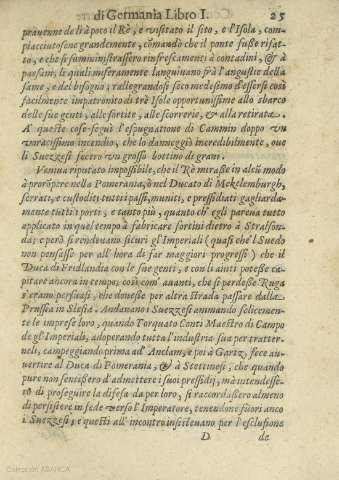 di Germania Libro I. 25
prauenne de lì à poco il Rè, e visitato il sito, e l'Isola, com-
piacciutosene grandemente, comandò che il ponte fusse rifat-
to, e che si somministrassero rinfrescamenti à contadini, & à
paesani, li quali miseramente languivano frà l'angustie della
fame, e del bisogno; rallegrandosi seco medesimo d'essersi così
facilmente impatronito di trè Isole opportunissime allo sbarco
delle sue genti, alle sortite, alle scorrerie, & alla retirata.
A queste cose seguì l'espugnatione di Cammin doppo vn
voracissimo incendio, che lo dameggiò incredibilmente, oue
li Suezzesi fecero vn grosso bottino di grani.
Veniua riputato impossibile, che il Rè mirasse in alcū modo
à prorōpere nella Pomerania, ò nel Ducato di Mekelemburgh,
serrati, e custoditi tutti i passi, muniti, e pressidiati gagliarda-
mente tutti i porti, e tanto più, quanto ch'egli pareua tutto
applicato in quel tempo à fabricare fortini dietro à Stralson-
da; e però si rendeuano sicuri gl'Imperiali (quasi che'l Suedo
non pensasse per all'hora di far maggiori progressi) che il
Duca di Fridlandia con le sue genti, e con li aiuti potesse ca-
pitare ancora in tempo; così com'auanti, che si perdesse Ruga
s'erano persuasi, che douesse per altra strada passare dalla
Prussia in Slesia. Andauano i Suezzesi ammando solicemen-
te le imprese loro, quando Torquato Conti Maestro di Campo
de gl'Imperiali, adoperando tutta l'industria sua per tratter-
nerli, campeggiando prima ad' Anclam, e poi à Gartz, fece au-
uertire al Duca di Pomerania, & à Stettinesi, che quando
pure non sentissero d'admettere i suoi pressidij, mà intendesse-
ro di proseguire la difesa da per loro, si raccordassero almeno
di persistere in fede verso l'Imperatore, tenendone fuori anco
i Suezzesi; e questi all'incontro insisteuano per l'esclusione
D de
Colección ABANCA